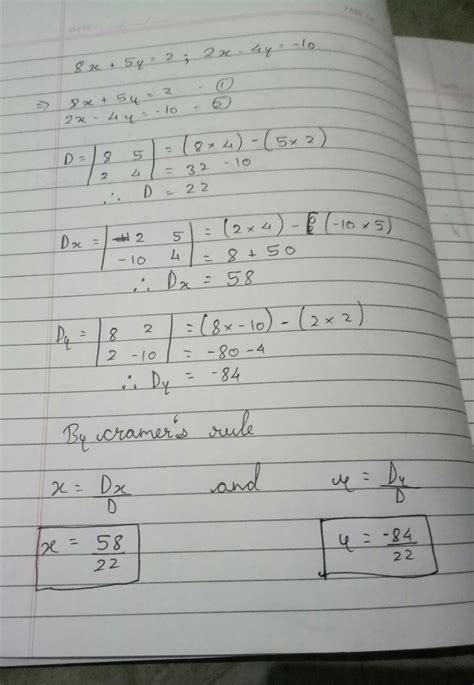 DATE
PAGE
8x + 5y = 2 ; 2x - 4y = -10
⇒ 8x + 5y = 2 - ①
2x - 4y = -10 - ②
D = | 8 5 | = (8 × 4) - (5 × 2)
| 2 4 | = 32 - 10
∴ D = 22
Dx = | 2 5 | = (2 × 4) - (-10 × 5)
| -10 4 | = 8 + 50
∴ Dx = 58
Dy = | 8 2 | = (8 × -10) - (2 × 2)
| 2 -10 | = -80 - 4
∴ Dy = -84
By cramer's rule
x = Dx/D and y = Dy/D
x = 58/22 y = -84/22